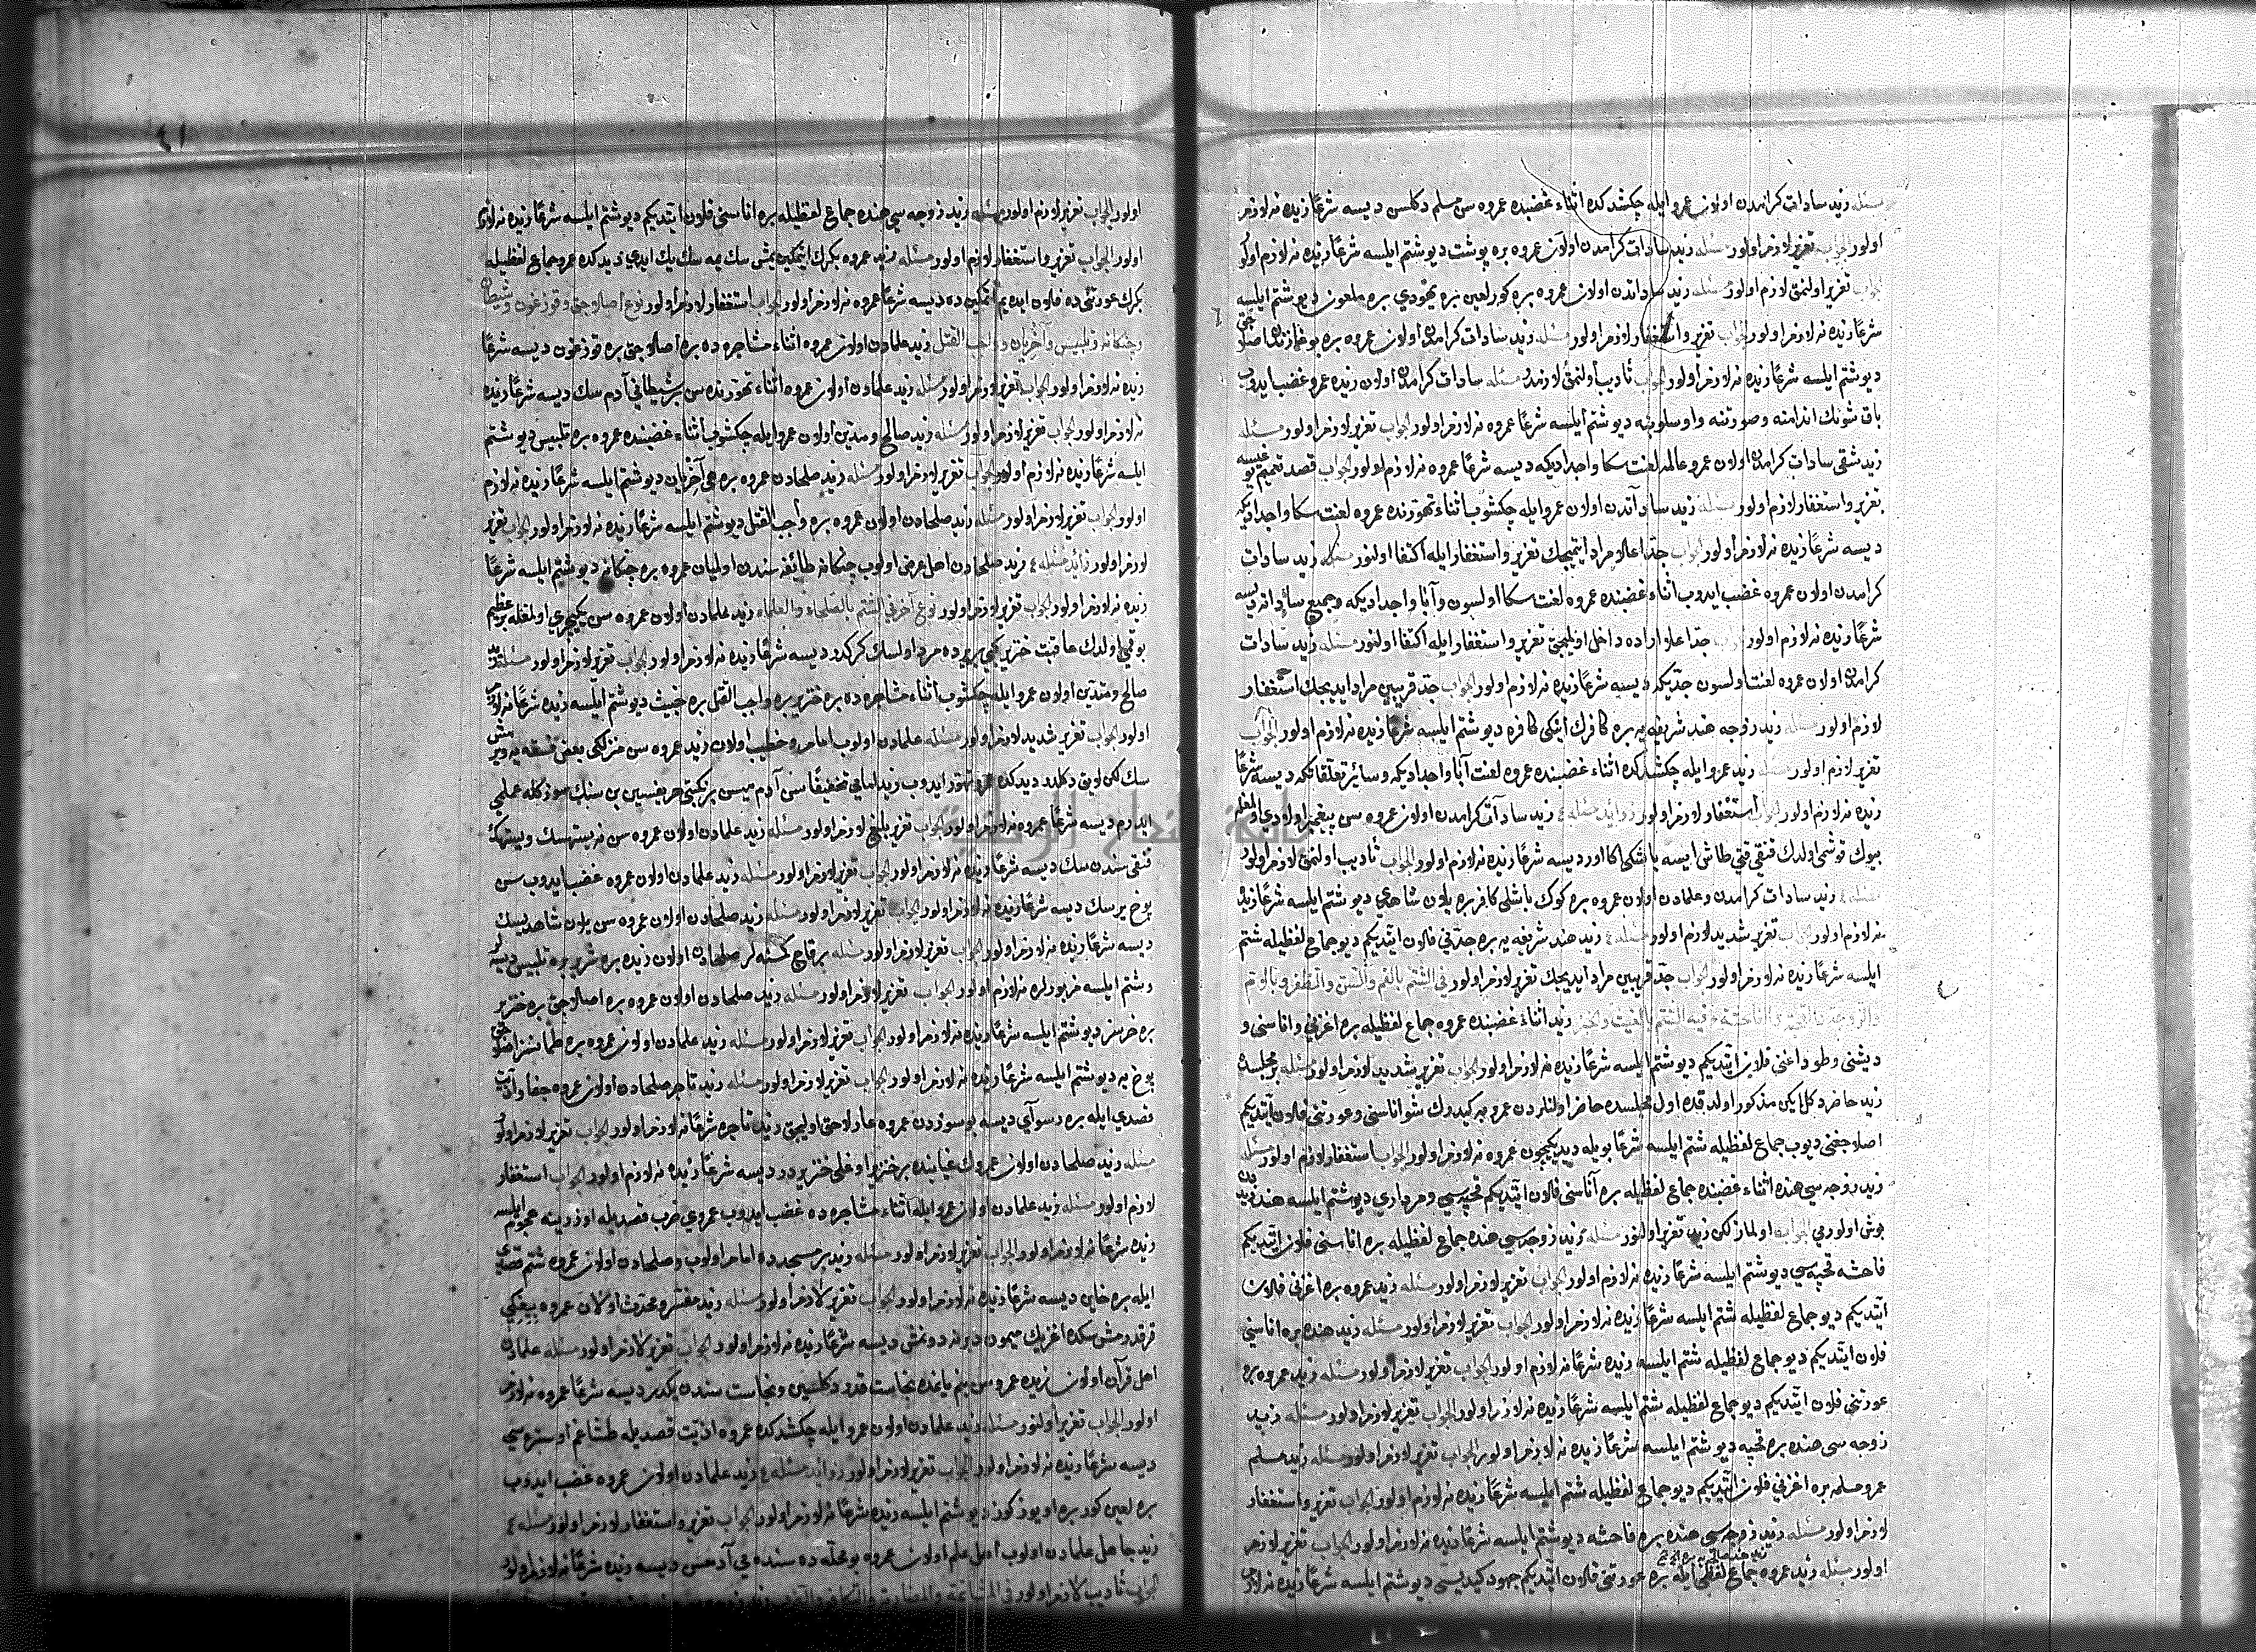 مسئله زيد سادات كرامدن اولان عمرو ايله چكشدكده اثناء غضبنده عمروه سن مسلم دكلسن ديسه شرعًا زيده نه لازم
اولور الجواب تعزير لازم اولور مسئله زيد سادات كرامدن اولان عمروه بره پوشت ديو شتم ايلسه شرعًا زيده نه لازم اولور
الجواب تعزير اولنمق لازم اولور مسئله زيد ساداتدن اولان عمروه بره كور لعين بره يهودي بره ملعون ديو شتم ايلسه
شرعًا زيده نه لازم اولور الجواب تعزير واستغفار لازم اولور مسئله زيد سادات كرامدن اولان عمروه بره
ديو شتم ايلسه شرعًا زيده نه لازم اولور الجواب تأديب اولنمق لازمدر مسئله سادات كرامدن اولان زيده عمرو غضب ايدوب
باق شونك اندامنه وصورتنه واوسلوبنه ديو شتم ايلسه شرعًا عمروه نه لازم اولور الجواب تعزير لازم اولور مسئله
زيد شقى سادات كرامدن اولان عمرو عالمه لعنت سكا واجداديكه ديسه شرعًا عمروه نه لازم اولور الجواب قصد تعميم
تعزير واستغفار لازم اولور مسئله زيد ساداتدن اولان عمرو ايله چكشوب اثناء تهورنده عمروه لعنت سكا واجداديكه
ديسه شرعًا زيده نه لازم اولور الجواب جد اعلا مراد ايتميجك تعزير واستغفار ايله اكتفا اولنور مسئله زيد سادات
كرامدن اولان عمروه غضب ايدوب اثناء غضبنده عمروه لعنت سكا اولسون وآبا واجداديكه وجميع ساداته ديسه
شرعًا زيده نه لازم اولور الجواب جد اعلا اراده داخل اوليجق تعزير واستغفار ايله اكتفا اولنور مسئله زيد سادات
كرامدن اولان عمروه لعنت اولسون جديكه ديسه شرعًا زيده نه لازم اولور الجواب جد قريبين مراد ايديجك استغفار
لازم اولور مسئله زيد زوجه هند شريفه يه بره كافرك اتيكى كافره ديو شتم ايلسه شرعًا زيده نه لازم اولور الجواب
تعزير لازم اولور مسئله زيد عمرو ايله چكشدكده اثناء غضبنده عمروه لعنت آبا واجداديكه وسائر تعلقاتكه ديسه شرعًا
زيده نه لازم اولور الجواب استغفار لازم اولور زوائد مسئله زيد سادات كرامدن اولان عمروه سن پيغمبر اولادى
بيوك قوشمى اولدك قنقى قتى طاش ايسه باشكى اكا اور ديسه شرعًا زيده نه لازم اولور الجواب تأديب اولنمق لازم اولور
مسئله زيد سادات كرامدن وعلمادن اولان عمروه بره كوك باشلى كافر بره يلان شاهدي ديو شتم ايلسه شرعًا زيده
نه لازم اولور الجواب تعزير شديد لازم اولور مسئله زيد هند شريفه يه بره جدني فلان ايتديكم ديو جماع لفظيله شتم
ايلسه شرعًا زيده نه لازم اولور الجواب جد قريبين مراد ايديجك تعزير لازم اولور في الشتم بالفم
زيد اثناء غضبنده عمروه جماع لفظيله بره اغزني واناسنى و
ديشنى وطوداغنى فلان ايتديكم ديو شتم ايلسه شرعًا زيده نه لازم اولور الجواب تعزير شديد لازم اولور مسئله بر مجلسده
زيد حاضر دكل ايكن مذكور اولدقده اول مجلسده حاضر اولنلردن عمرو بكيدرك شو اناسنى وعورتنى فلان ايتديكم
اصلا جغنى ديوب جماع لفظيله شتم ايلسه شرعًا بويله ديديكيچون عمروه نه لازم اولور الجواب استغفار لازم اولور مسئله
زيد زوجه سي هنده اثناء غضبنده جماع لفظيله بره آناسنى فلان ايتديكم قحبه سي ومرداري ديو شتم ايلسه هند زيددن
بوش اولورمي الجواب اولماز لكن زيد تعزير اولنور مسئله زيد زوجه سي هنده جماع لفظيله بره اناسنى فلان ايتديكم
فاحشه قحبه سي ديو شتم ايلسه شرعًا زيده نه لازم اولور الجواب تعزير لازم اولور مسئله زيد عمروه بره اغزني فلان
ايتديكم ديو جماع لفظيله شتم ايلسه شرعًا زيده نه لازم اولور الجواب تعزير لازم اولور مسئله زيد هنده بره اناسنى
فلان ايتديكم ديو جماع لفظيله شتم ايلسه زيده شرعًا نه لازم اولور الجواب تعزير لازم اولور مسئله زيد عمروه بره
عورتنى فلان ايتديكم ديو جماع لفظيله شتم ايلسه شرعًا زيده نه لازم اولور الجواب تعزير لازم اولور مسئله زيد
زوجه سي هنده بره قحبه ديو شتم ايلسه شرعًا زيده نه لازم اولور الجواب تعزير لازم اولور مسئله زيد مسلم
عمرو مسلمه بره اغزني فلان ايتديكم ديو جماع لفظيله شتم ايلسه شرعًا زيده نه لازم اولور الجواب تعزير واستغفار
لازم اولور مسئله زيد زوجه سي هنده بره فاحشه ديو شتم ايلسه شرعًا زيده نه لازم اولور الجواب تعزير لازم
اولور مسئله زيد عمروه جماع لفظى ايله بره عورتنى فلان ايتديكم جهود كيديسى ديو شتم ايلسه شرعًا زيده نه لازم
اولور الجواب تعزير لازم اولور مسئله زيد زوجه سي هنده جماع لفظيله بره اناسنى فلان ايتديكم ديو شتم ايلسه شرعًا زيده نه لازم
اولور الجواب تعزير واستغفار لازم اولور مسئله زيد عمروه بكرك ايتمكين يمش سك يمه سك يك ايدي ديدكده عمرو جماع لفظيله
بكرك عورتنى ده فلان ايده يم ايتمكين ده ديسه شرعًا عمروه نه لازم اولور الجواب استغفار لازم اولور نوع اصلاجق وقوذغون وشيطان
وچنكانه وتلبيس وآخريان وواجب القتل زيد علمادن اولان عمروه اثناء مشاجره ده بره اصلاجق بره قوذغون ديسه شرعًا
زيده نه لازم اولور الجواب تعزير لازم اولور مسئله زيد علمادن اولان عمروه اثناء تهورنده سن بر شيطاني آدم سك ديسه شرعًا زيده
نه لازم اولور الجواب تعزير لازم اولور مسئله زيد صالح ومتدين اولان عمرو ايله چكشوب اثناء غضبنده عمروه بره تلبيس ديو شتم
ايلسه شرعًا زيده نه لازم اولور الجواب تعزير لازم اولور مسئله زيد صلحادن عمروه بره هي آخريان ديو شتم ايلسه شرعًا زيده نه لازم
اولور الجواب تعزير لازم اولور مسئله زيد صلحادن اولان عمروه بره واجب القتل ديو شتم ايلسه شرعًا زيده نه لازم اولور الجواب تعزير
لازم اولور زائد مسئله زيد صلحادن اهل عرض اولوب چنكانه طائفه سندن اوليان عمروه بره چنكانه ديو شتم ايلسه شرعًا
زيده نه لازم اولور الجواب تعزير لازم اولور نوع آخر في الشتم بالصلحاء والعلماء زيد علمادن اولان عمروه سن يكيچري اوغلنه بر عظيم
بوقمى اولدك عاقبت خنزير كبى بر يرده مردار اولسك كركدر ديسه شرعًا زيده نه لازم اولور الجواب تعزير لازم اولور مسئله زيد
صالح ومتدين اولان عمرو ايله چكشوب اثناء مشاجره ده بره خنزير بره واجب القتل بره خبيث ديو شتم ايلسه زيده شرعًا نه لازم
اولور الجواب تعزير شديد لازم اولور مسئله علمادن اولوب امام وخطيب اولان زيد عمروه سن منزلكى بعض فسقه يه ويرمش
سك لكن لايق دكلدر ديدكده عمرو تهور ايدوب زيد امامي تخفيفًا سن آدم ميسن
ايدرم ديسه شرعًا عمروه نه لازم اولور الجواب تعزير بليغ لازم اولور مسئله زيد علمادن اولان عمروه سن نه پيستسك
قنقى سندن سك ديسه شرعًا زيده نه لازم اولور الجواب تعزير لازم اولور مسئله زيد علمادن اولان عمروه غضب ايدوب سن
پوخ يرسك ديسه شرعًا زيده نه لازم اولور الجواب تعزير لازم اولور مسئله زيد صلحادن اولان عمروه سن يلان شاهديسك
ديسه شرعًا زيده نه لازم اولور الجواب تعزير لازم اولور مسئله بر قاچ كمسنه لر صلحادن اولان زيده بره شرير بره تلبيس ديسه لر
وشتم ايلسه مزبورلره نه لازم اولور الجواب تعزير لازم اولور مسئله زيد صلحادن اولان عمروه بره اصلاجق بره خنزير
بره خرسز ديو شتم ايلسه شرعًا زيده نه لازم اولور الجواب تعزير لازم اولور مسئله زيد علمادن اولان عمروه بره
پوخ يه ديو شتم ايلسه شرعًا زيده نه لازم اولور الجواب تعزير لازم اولور مسئله زيد تاجر صلحادن اولان عمروه جفا واهانت
قصدي ايله بره رسواي ديسه بو سوزدن عمروه عار لاحق اوليجق زيد تاجره شرعًا نه لازم اولور الجواب تعزير لازم اولور
مسئله زيد صلحادن اولان عمروك غيابنده بر خنزير اوغلى خنزيردر ديسه شرعًا زيده نه لازم اولور الجواب استغفار
لازم اولور مسئله زيد علمادن اولان عمرو ايله اثناء مشاجره ده غضب ايدوب عمروي ضرب قصديله اوزرينه هجوم ايلسه
زيده شرعًا نه لازم اولور الجواب تعزير لازم اولور مسئله زيد بر مسجدده امام اولوب وصلحادن اولان عمروه شتم قصدي
ايله بره خاين ديسه شرعًا زيده نه لازم اولور الجواب تعزير لازم اولور مسئله زيد مفسر ومحدث اولان عمروه
قرقدرمش سكده اغزيك ميمون ديسه شرعًا زيده نه لازم اولور الجواب تعزير لازم اولور مسئله علمادن
اهل قرآن اولان زيده عمرو سن بنم يانمده نجاست قدر دكلسين ونجاست سندن يكدر ديسه شرعًا عمروه نه لازم
اولور الجواب تعزير اولنور مسئله زيد علمادن اولان عمرو ايله چكشدكده عمروه اذيت قصديله
ديسه شرعًا زيده نه لازم اولور الجواب تعزير لازم اولور زوائد مسئله زيد علمادن اولان عمروه غضب ايدوب
بره لعين كور بره ديو شتم ايلسه زيده شرعًا نه لازم اولور الجواب تعزير واستغفار لازم اولور مسئله
زيد جاهل علمادن اولوب اهل علم اولان عمروه بو محله ده سنده مى آدمسن ديسه زيده شرعًا نه لازم اولور
الجواب تأديب لازم اولور في